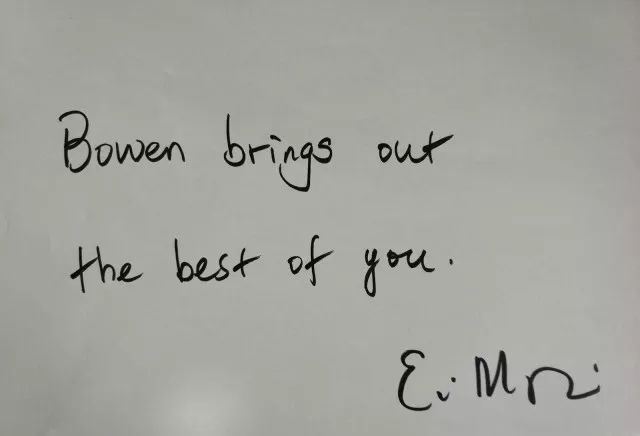 Bowen brings out
the best of you.